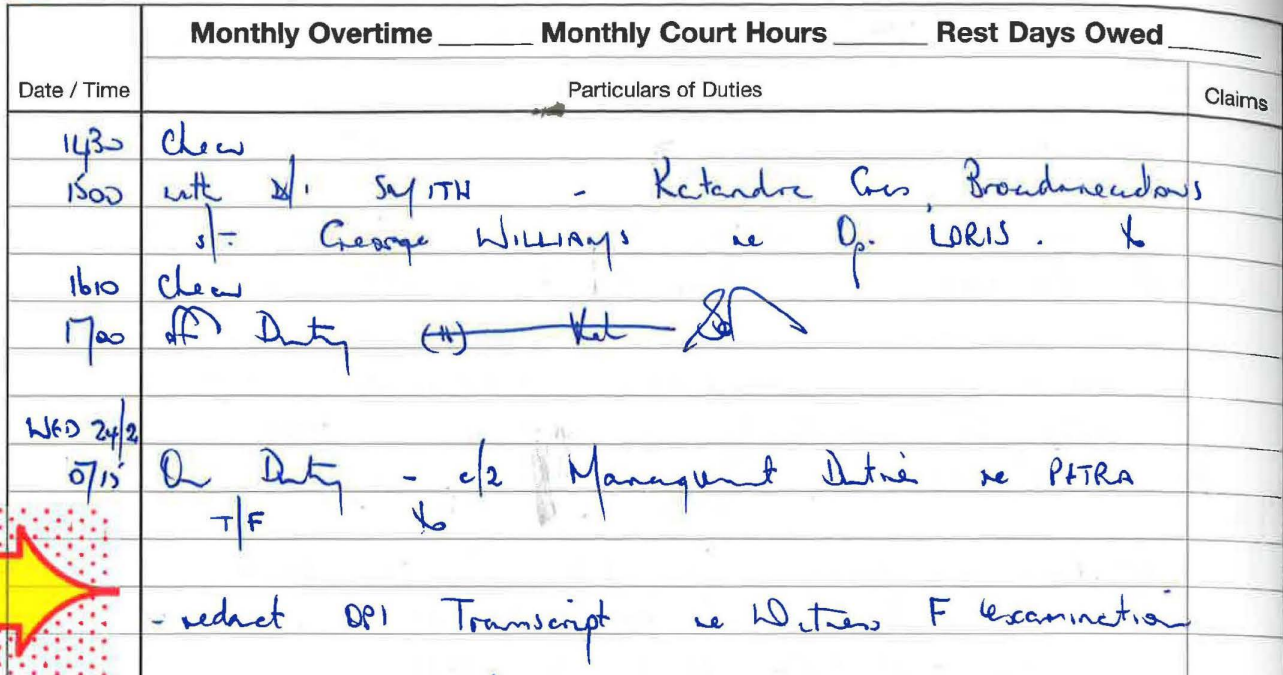 Monthly Overtime Monthly Court Hours Rest Days Owed
Date / Time Particulars of Duties Claims
1430 Clear
1500 with D/I SMITH - Katandra Cres, Broadmeadows
s/t George WILLIAMS re Op. LORIS.
1610 Clear
1700 off Duty (H)
WED 24/2
0715 On Duty - c/2 Management Duties re PETRA
T/F
- redact OPI Transcript re Witness F examination